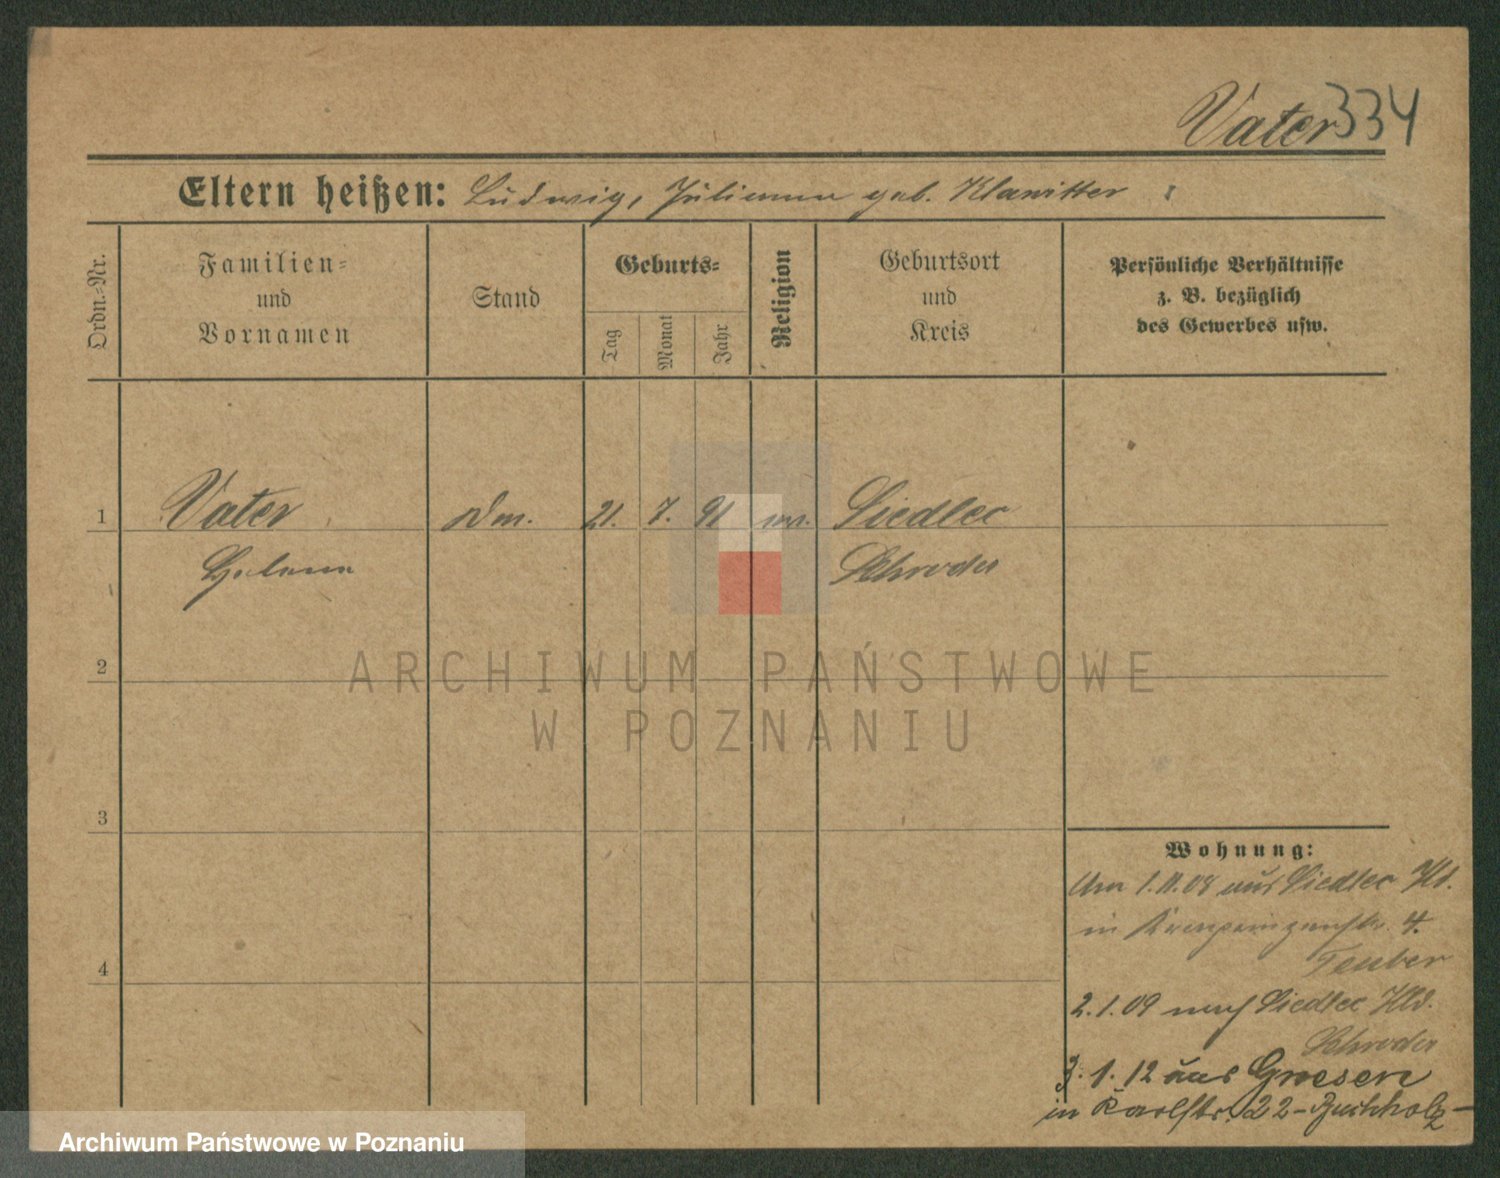 Vater 334
Eltern heißen: Ludwig, Julianna geb. Klawitter
Ordn.-Nr.
Familien-
und
Vornamen
Stand
Geburts-
Tag
Monat
Jahr
Religion
Geburtsort
und
Kreis
Persönliche Verhältnisse
z. B. bezüglich
des Gewerbes usw.
1 Vater 21. 7. 91 Siedlec
Helena Schroda
2
ARCHIWUM PAŃSTWOWE
W POZNANIU
3
4
Wohnung:
Am 1.11.08 aus Siedlec
in Kronprinzenstr. 4.
Teuber
2.1.09 nach Siedlec
Schroda
3.1.12 aus Gnesen
in Karlstr. 22 - Buchholz -
Archiwum Państwowe w Poznaniu